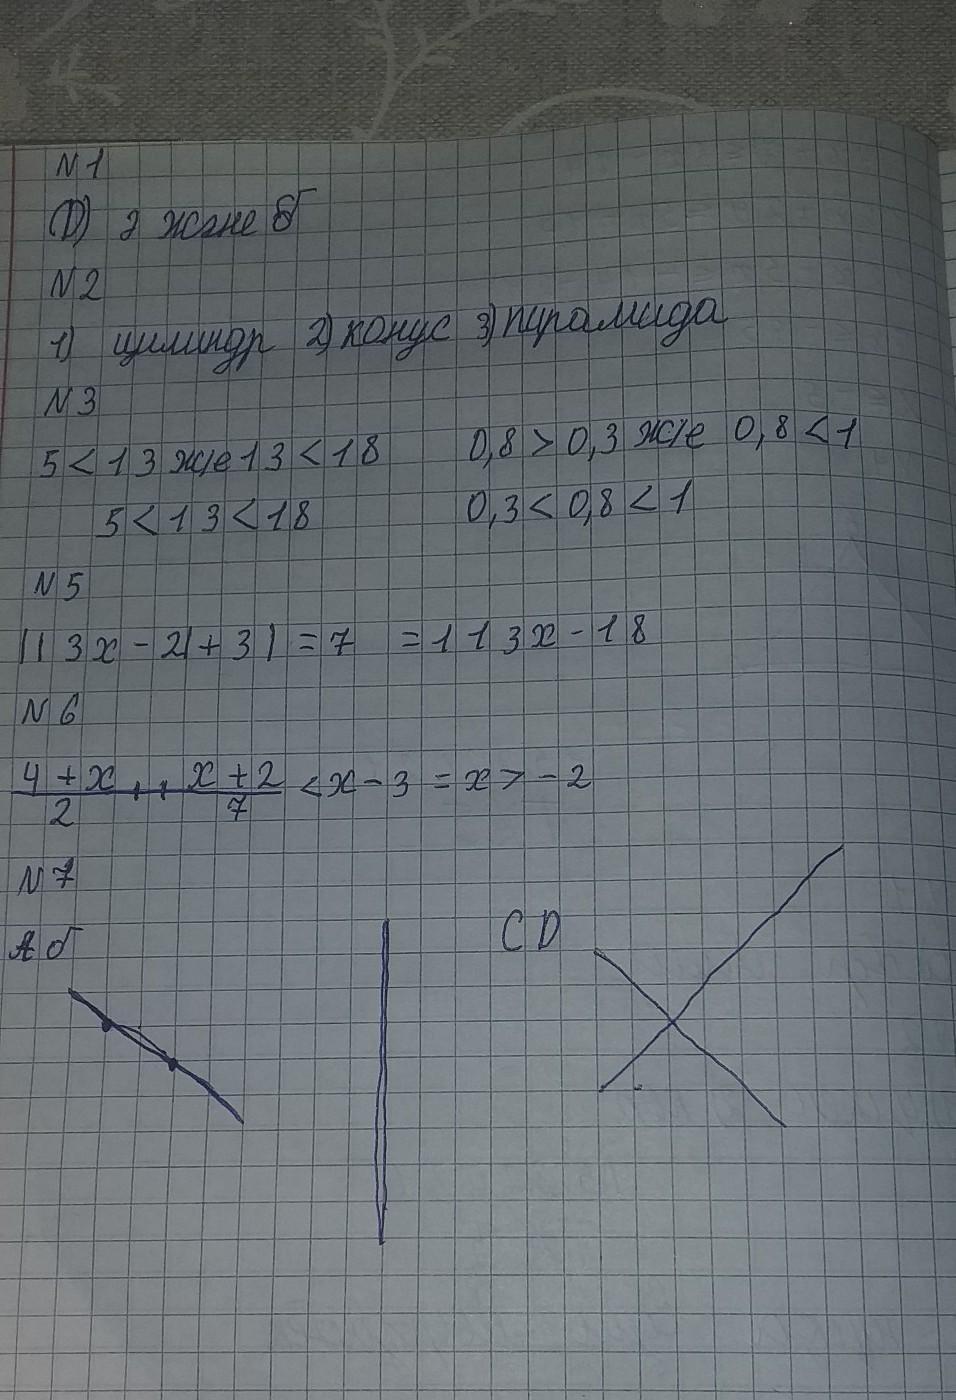 N1
(D) 2 және 5
N2
1) цилиндр 2) конус 3) пирамида
N3
5 < 13 ж/е 13 < 18 0,8 > 0,3 ж/е 0,8 < 1
5 < 13 < 18 0,3 < 0,8 < 1
N5
|| 3x - 2| + 3 | = 7 = 113x - 18
N6
4 + x / 2 , , x + 2 / 7 < x - 3 = x > - 2
N7
Аб CD